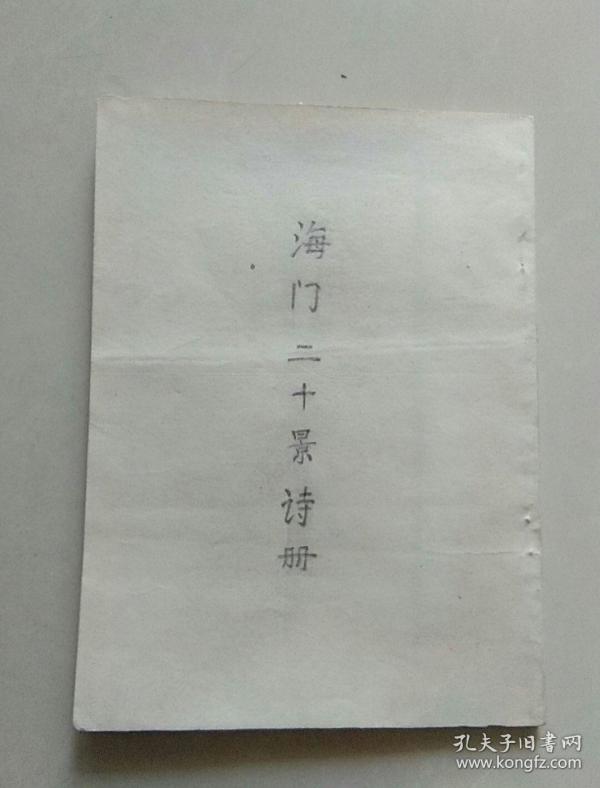 海门二十景诗册
孔夫子旧書网
www.kongfz.com